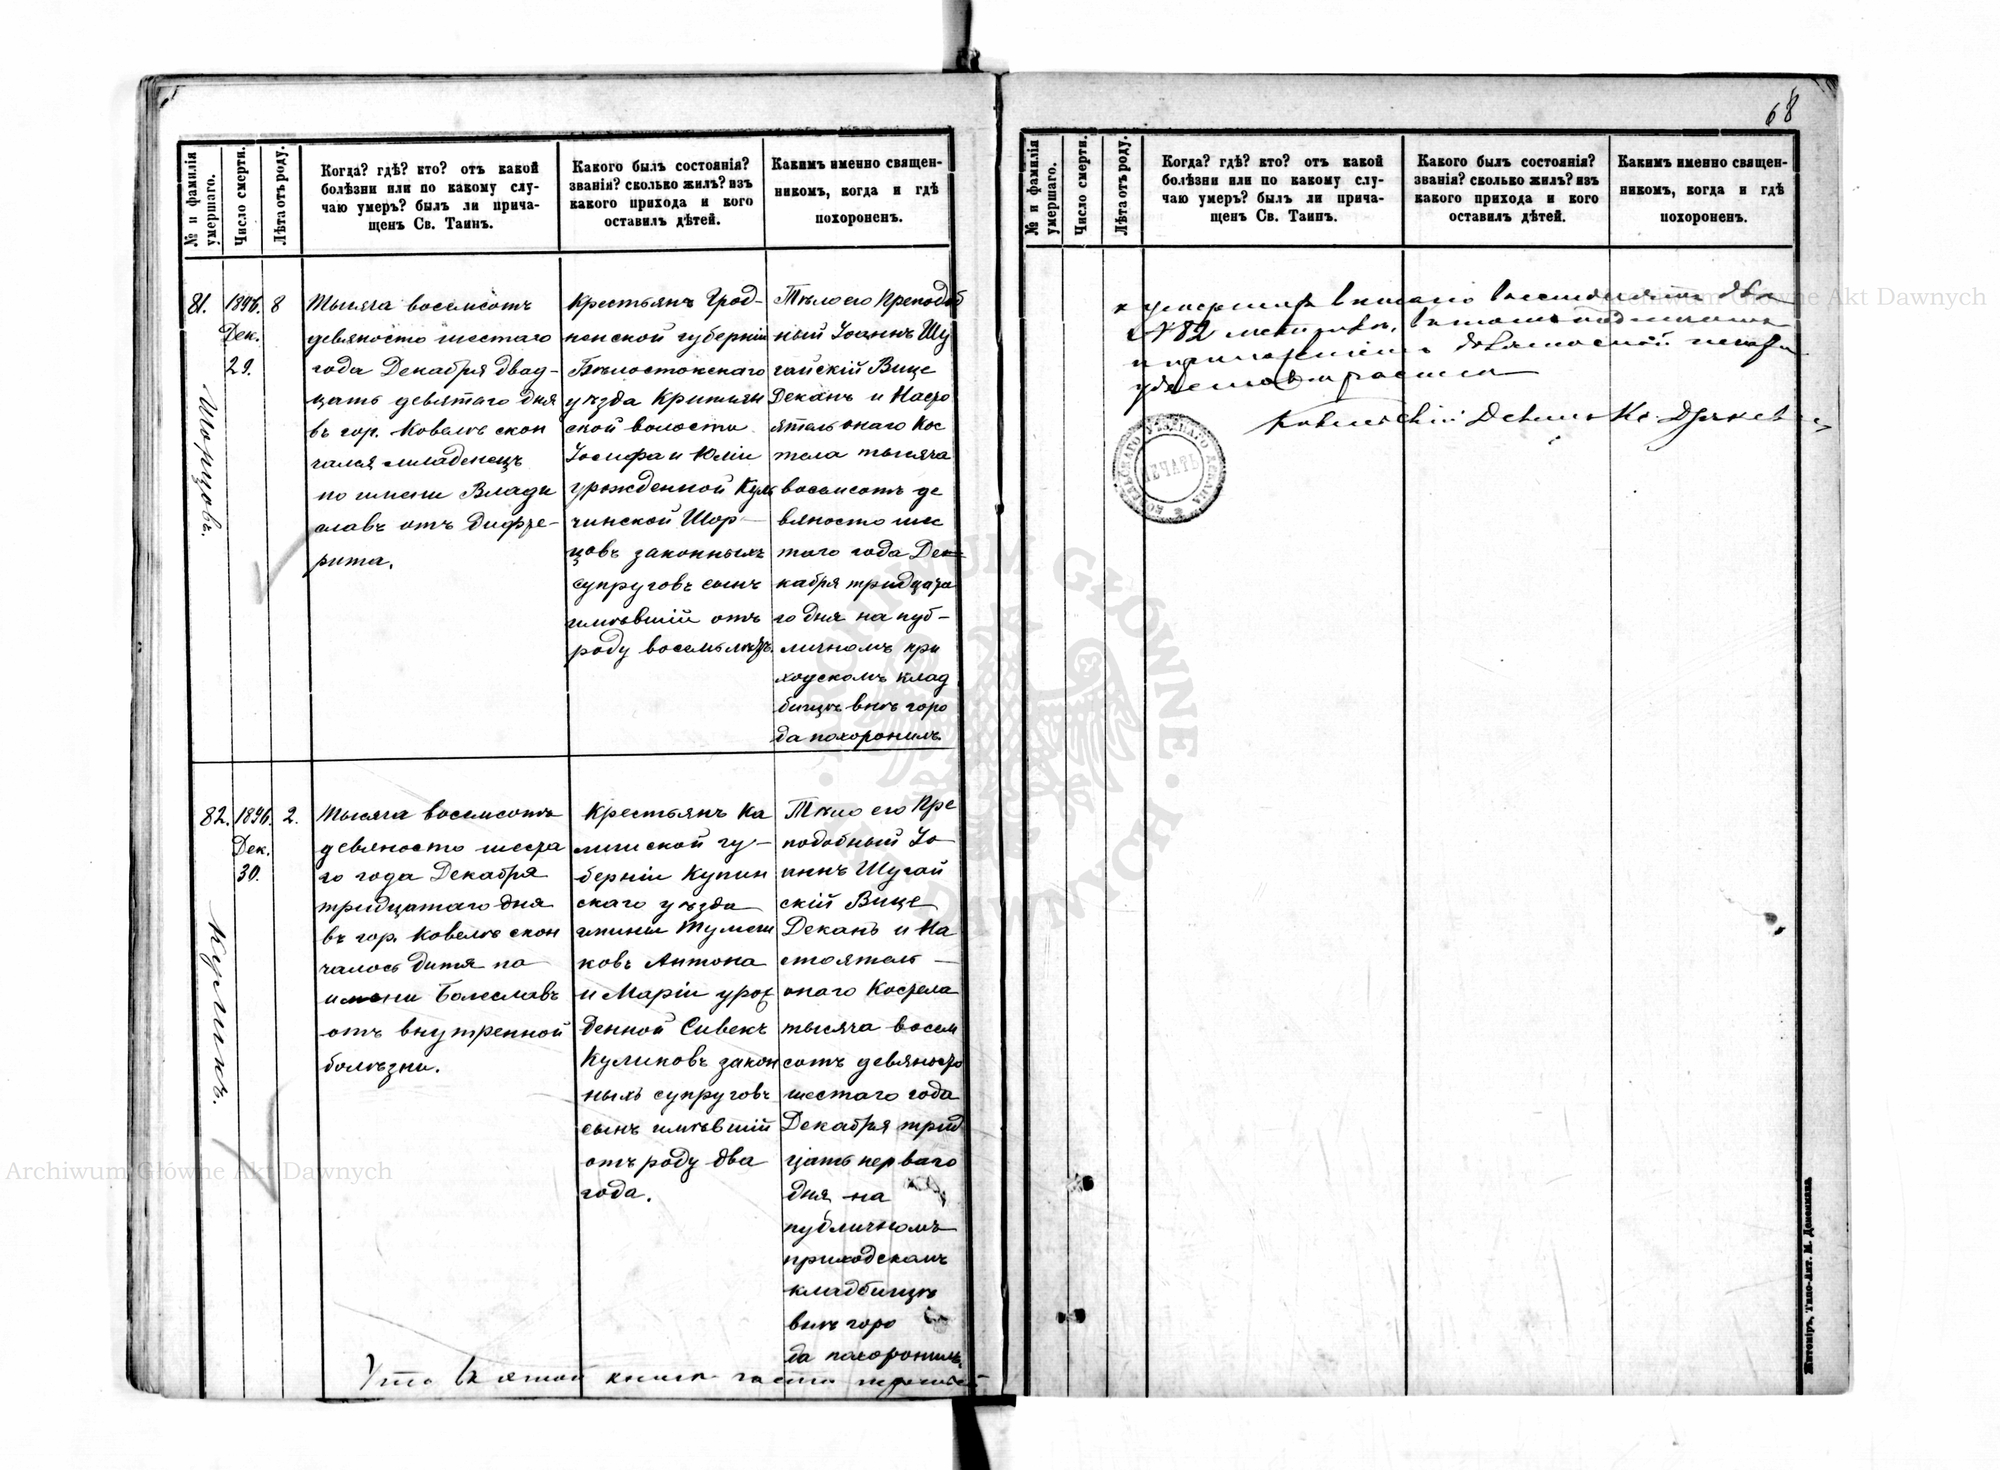 68
№ и фамилія умершаго.
Число смерти.
Лѣта отъ роду.
Когда? гдѣ? кто? отъ какой
болѣзни или по какому слу-
чаю умеръ? былъ ли прича-
щенъ Св. Таинъ.
Какого былъ состоянія?
званія? сколько жилъ? изъ
какого прихода и кого
оставилъ дѣтей.
Какимъ именно священ-
никомъ, когда и гдѣ
похороненъ.
81.
Шорцовъ.
1896.
Дек.
29.
8
Тысяча восемсотъ
девяносто шестаго
года Декабря двад-
цать девятаго дня
въ гор. Ковелѣ скон
чался младенецъ
по имени Влади
славъ отъ дифте-
рита.
Крестьянъ Грод-
ненской губерніи
Бѣлостокскаго
уѣзда
ской волости
Іосифа и Юліи
урожденной
чинской Шор-
цовъ законныхъ
супруговъ сынъ
имѣвшій отъ
роду восемь лѣтъ.
Тѣло его Преподоб
ный Іоаннъ Шу
гайскій Вице
Деканъ и Насто
ятель онаго Кос
тела тысяча
восемсотъ де
вяносто шес
таго года Де-
кабря тридцата
го дня на пуб-
личномъ при
ходскомъ клад
бищѣ внѣ горо
да похоронилъ
82.
Куликъ.
1896.
Дек.
30.
2.
Тысяча восемсотъ
девяносто шеста
го года Декабря
тридцатаго дня
въ гор. Ковелѣ скон
чалось дитя по
имени Болеславъ
отъ внутренной
болѣзни.
Крестьянъ Ка
лишской гу-
берніи
скаго уѣзда
гмины
ковъ Антона
и Маріи урож
денной Сивекъ
Куликовъ закон
ныхъ супруговъ
сынъ имѣвшій
отъ роду два
года.
Тѣло его Пре
подобный Іо
аннъ Шугай
скій Вице
Деканъ и На
стоятель
онаго Костела
тысяча восем
сотъ девяносто
шестаго года
Декабря трид
цать перваго
дня на
публичномъ
приходскомъ
кладбищѣ
внѣ горо
да похоронилъ.
Что въ этой книгѣ части третьей
№ и фамилія умершаго.
Число смерти.
Лѣта отъ роду.
Когда? гдѣ? кто? отъ какой
болѣзни или по какому слу-
чаю умеръ? былъ ли прича-
щенъ Св. Таинъ.
Какого былъ состоянія?
званія? сколько жилъ? изъ
какого прихода и кого
оставилъ дѣтей.
Какимъ именно священ-
никомъ, когда и гдѣ
похороненъ.
№ 82
Ковельскій Деканъ Кс.
ПЕЧАТЬ
Житоміръ, Типо-Лит. М. Дененмана
Archiwum Główne Akt Dawnych
Archiwum Główne Akt Dawnych
ARCHIWUM GŁÓWNE AKT DAWNYCH